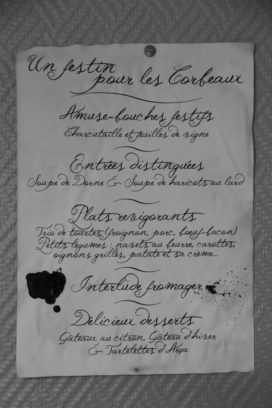 Un festin
pour les Corbeaux
Amuse-bouches festifs
Charcutaille et feuilles de vigne
Entrées distinguées
Soupe de Dorne & Soupe de haricots au lard
Plats revigorants
Trio de tourtes (poignon, porc, bœuf-bacon)
Petits légumes : navets au beurre, carottes,
oignons grillés, patate et sa crème...
Interlude fromager
Délicieux desserts
Gâteau au citron, Gâteau d'hiver
& Tartelettes d'Arya